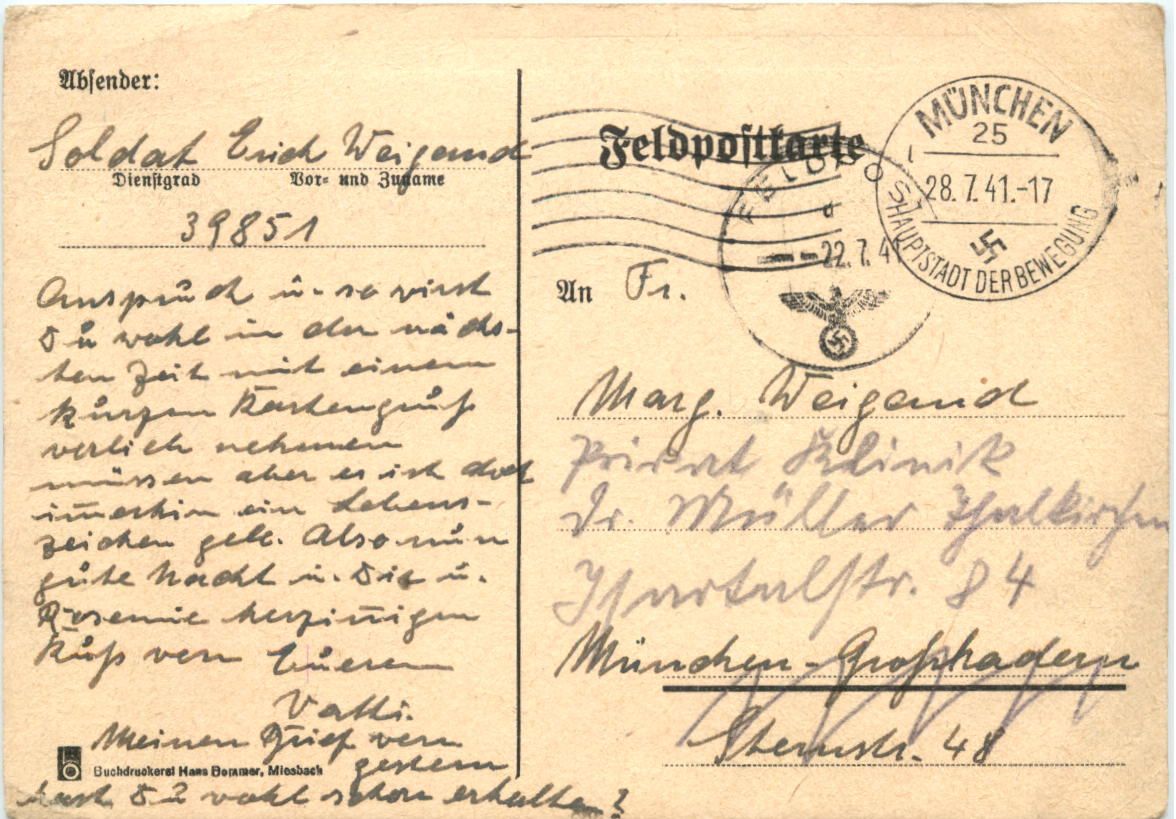 Absender:
Soldat Erich Weigand
Dienstgrad Vor- und Zuname
39851
Anspruch u. so wirst
Du wohl in der nächs-
ten Zeit mit einem
kurzen Kartengruß
vorlieb nehmen
müssen aber es ist doch
im̅erhin ein Lebens-
zeichen gell. Also nun
gute Nacht u. Dir u.
Rosemie herzin̅igen
Kuß von Eueren
Vatti.
Meinen Brief von
gestern
hast Du wohl schon erhalten?
Buchdruckerei Hans Bommer, Miesbach
Feldpostkarte
FELDPOST
d
22.7.41
MÜNCHEN
25
28.7.41.-17
HAUPTSTADT DER BEWEGUNG
An Fr.
Marg. Weigand
Privat Klinik
Dr. Müller Thalkirchen
Isartalstr. 84
München-Großhadern
Sternstr. 48